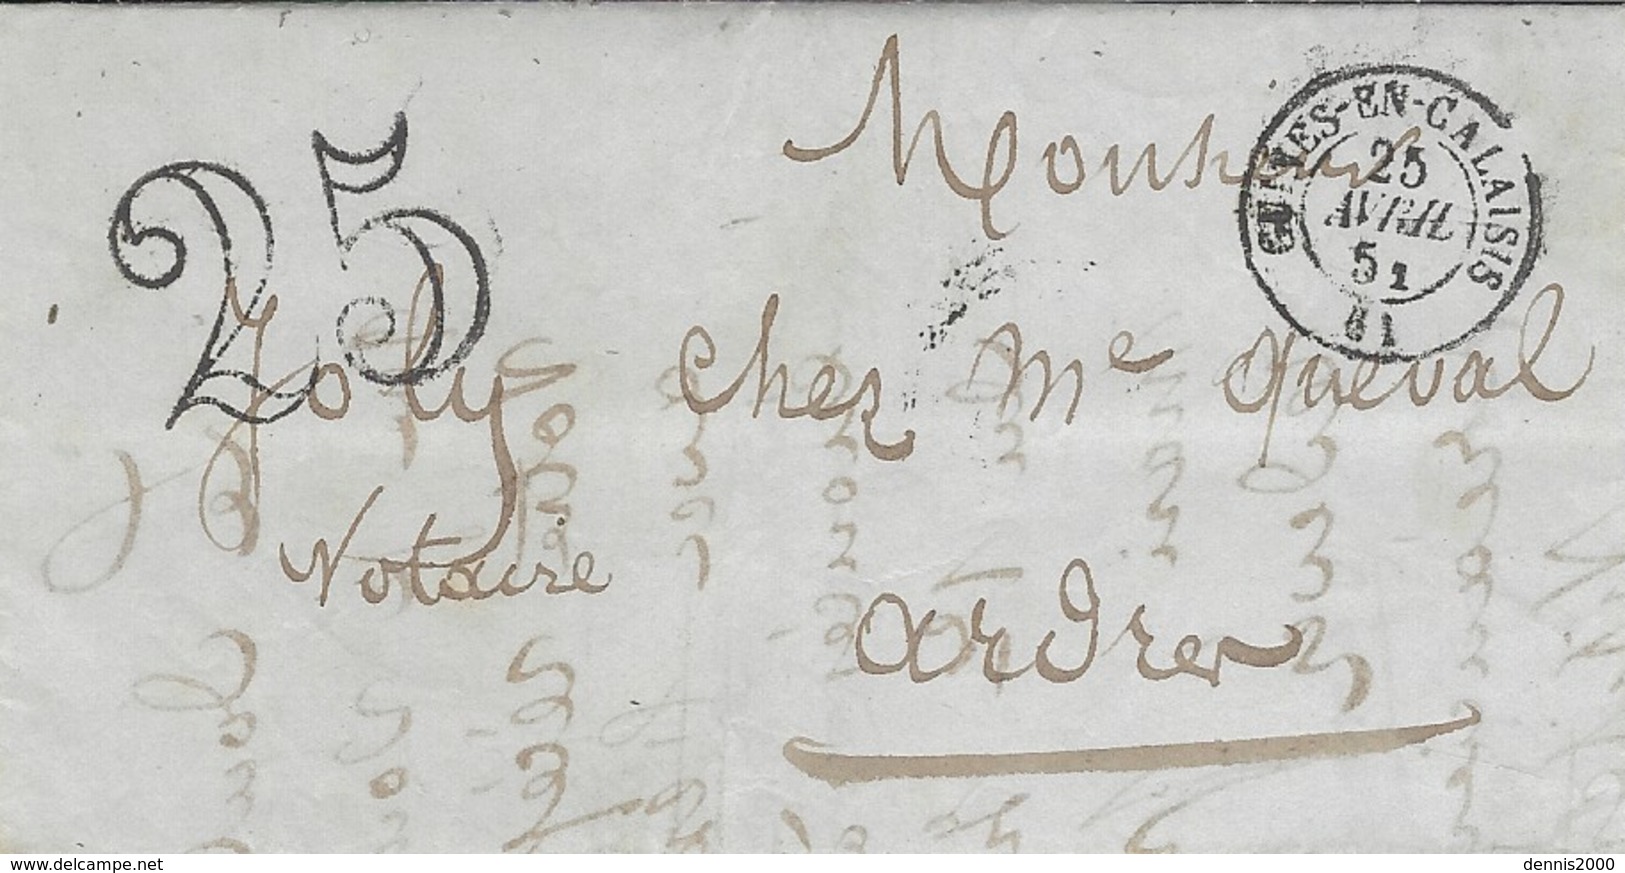 25
GUINES-EN-CALAISIS
25
AVRIL
51
61
Monsieur
Joly chez Me Queval
Notaire
ardres
www.delcampe.net
dennis2000